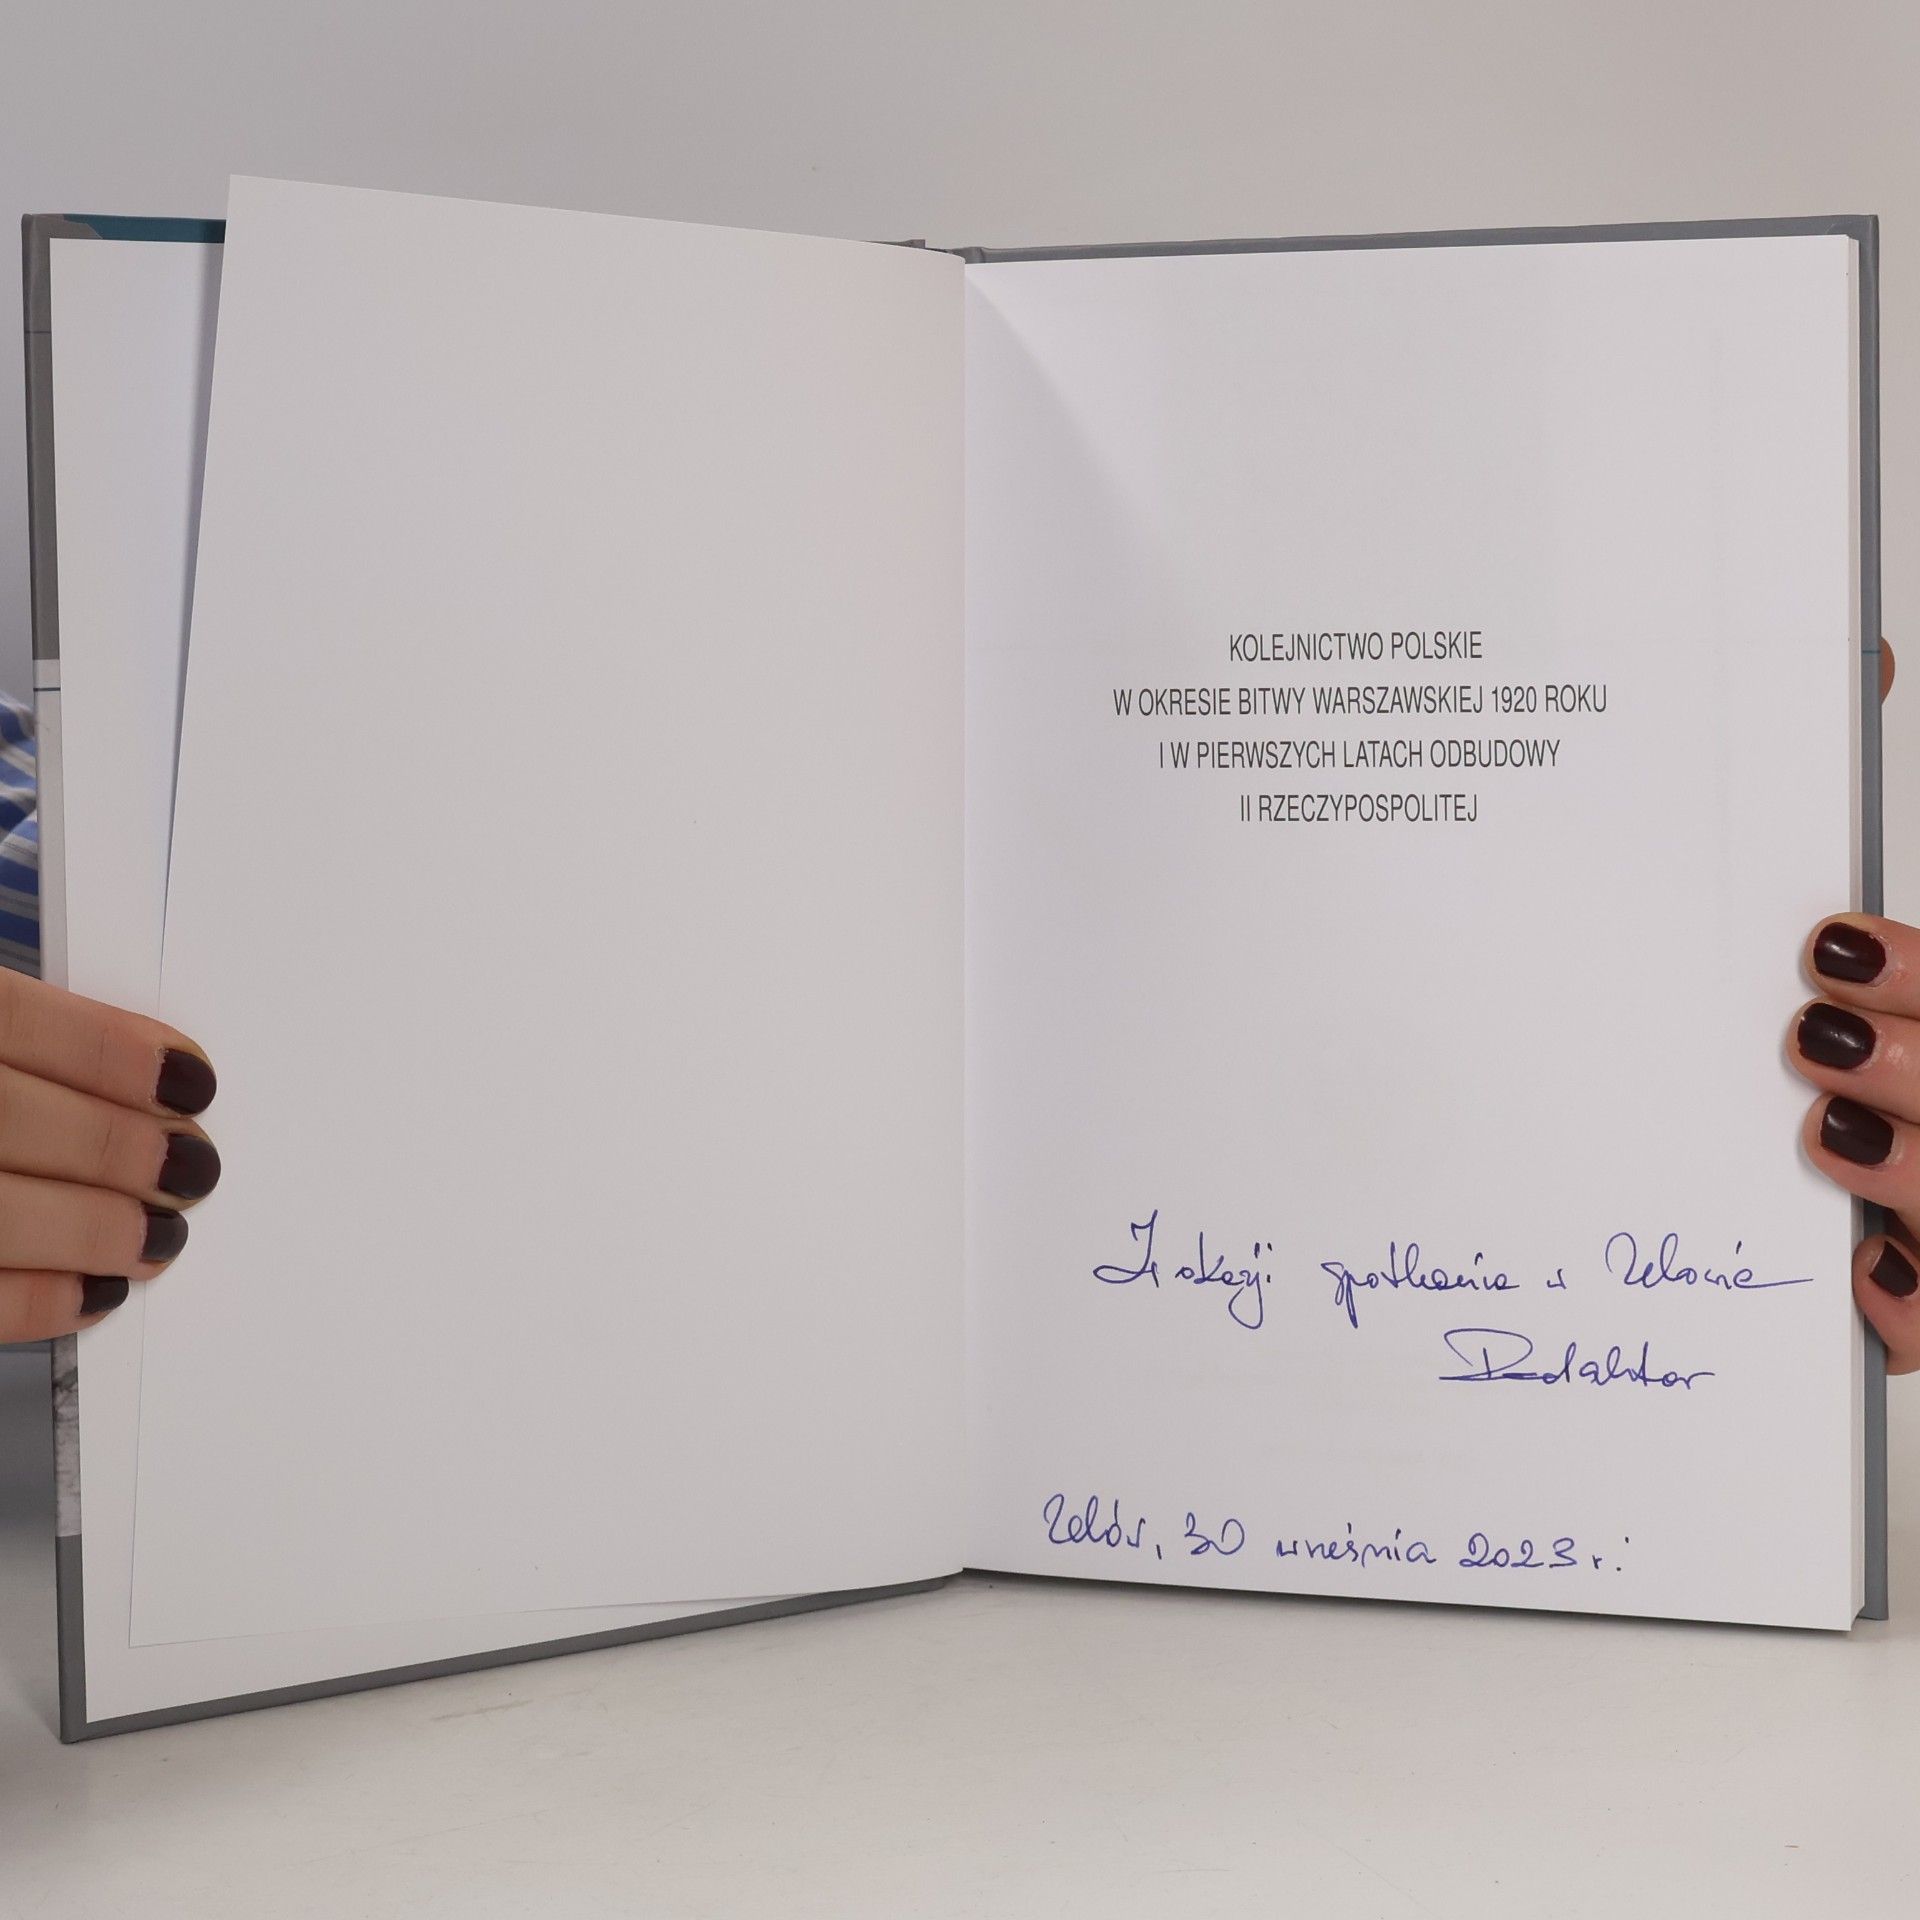 KOLEJNICTWO POLSKIE
W OKRESIE BITWY WARSZAWSKIEJ 1920 ROKU
I W PIERWSZYCH LATACH ODBUDOWY
II RZECZYPOSPOLITEJ
Z okazji spotkania w Zelowie
Redaktor
Zelów, 30 września 2023 r.